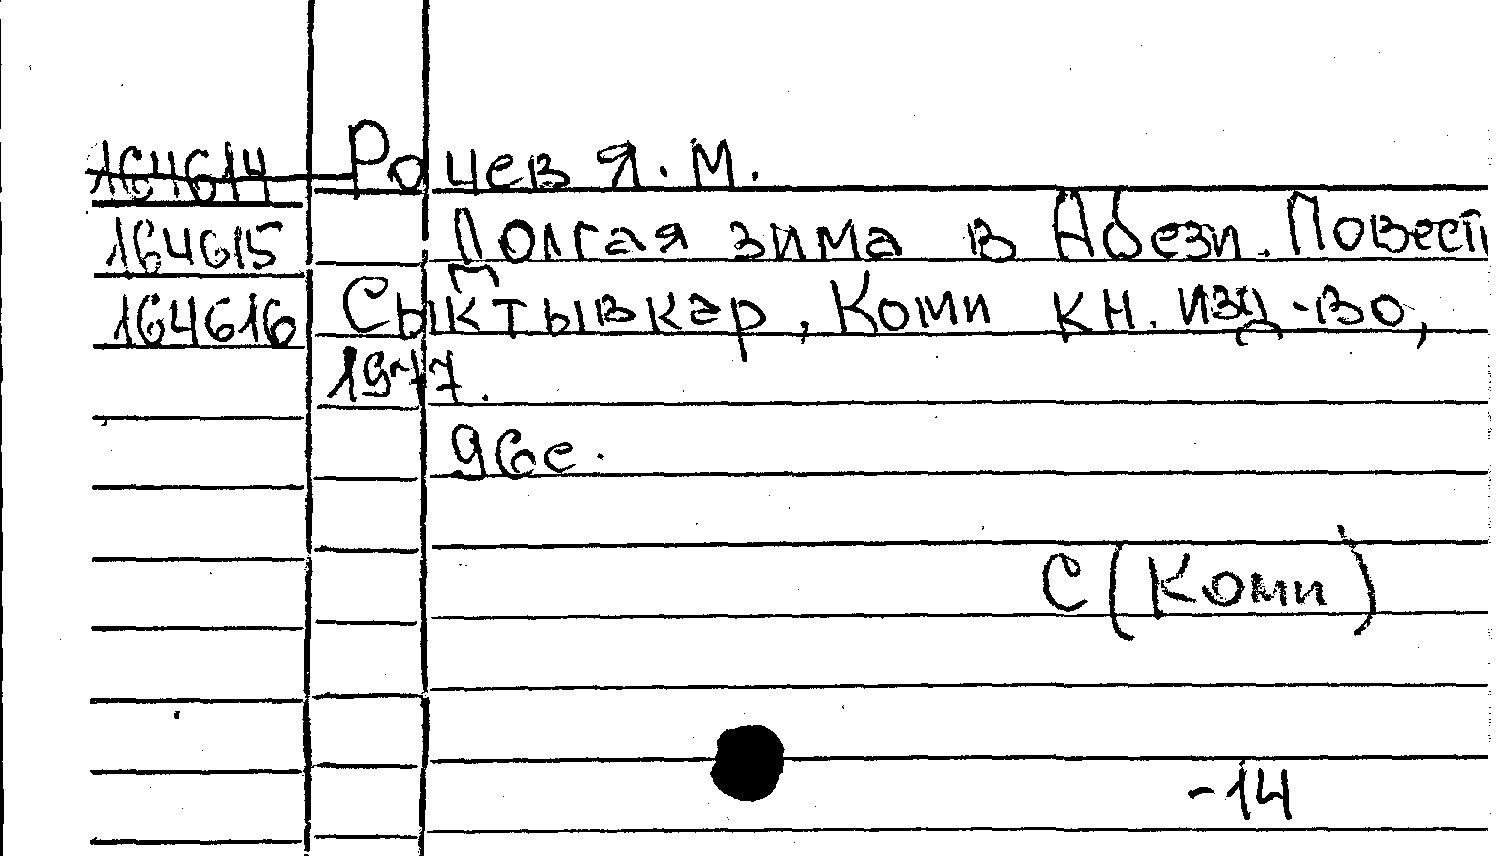 164614 Рочев Я. М.
164615 Долгая зима в Абези. Повест
164616 Сыктывкар, Коми кн. изд-во,
1977.
96с.
С (Коми)
-14